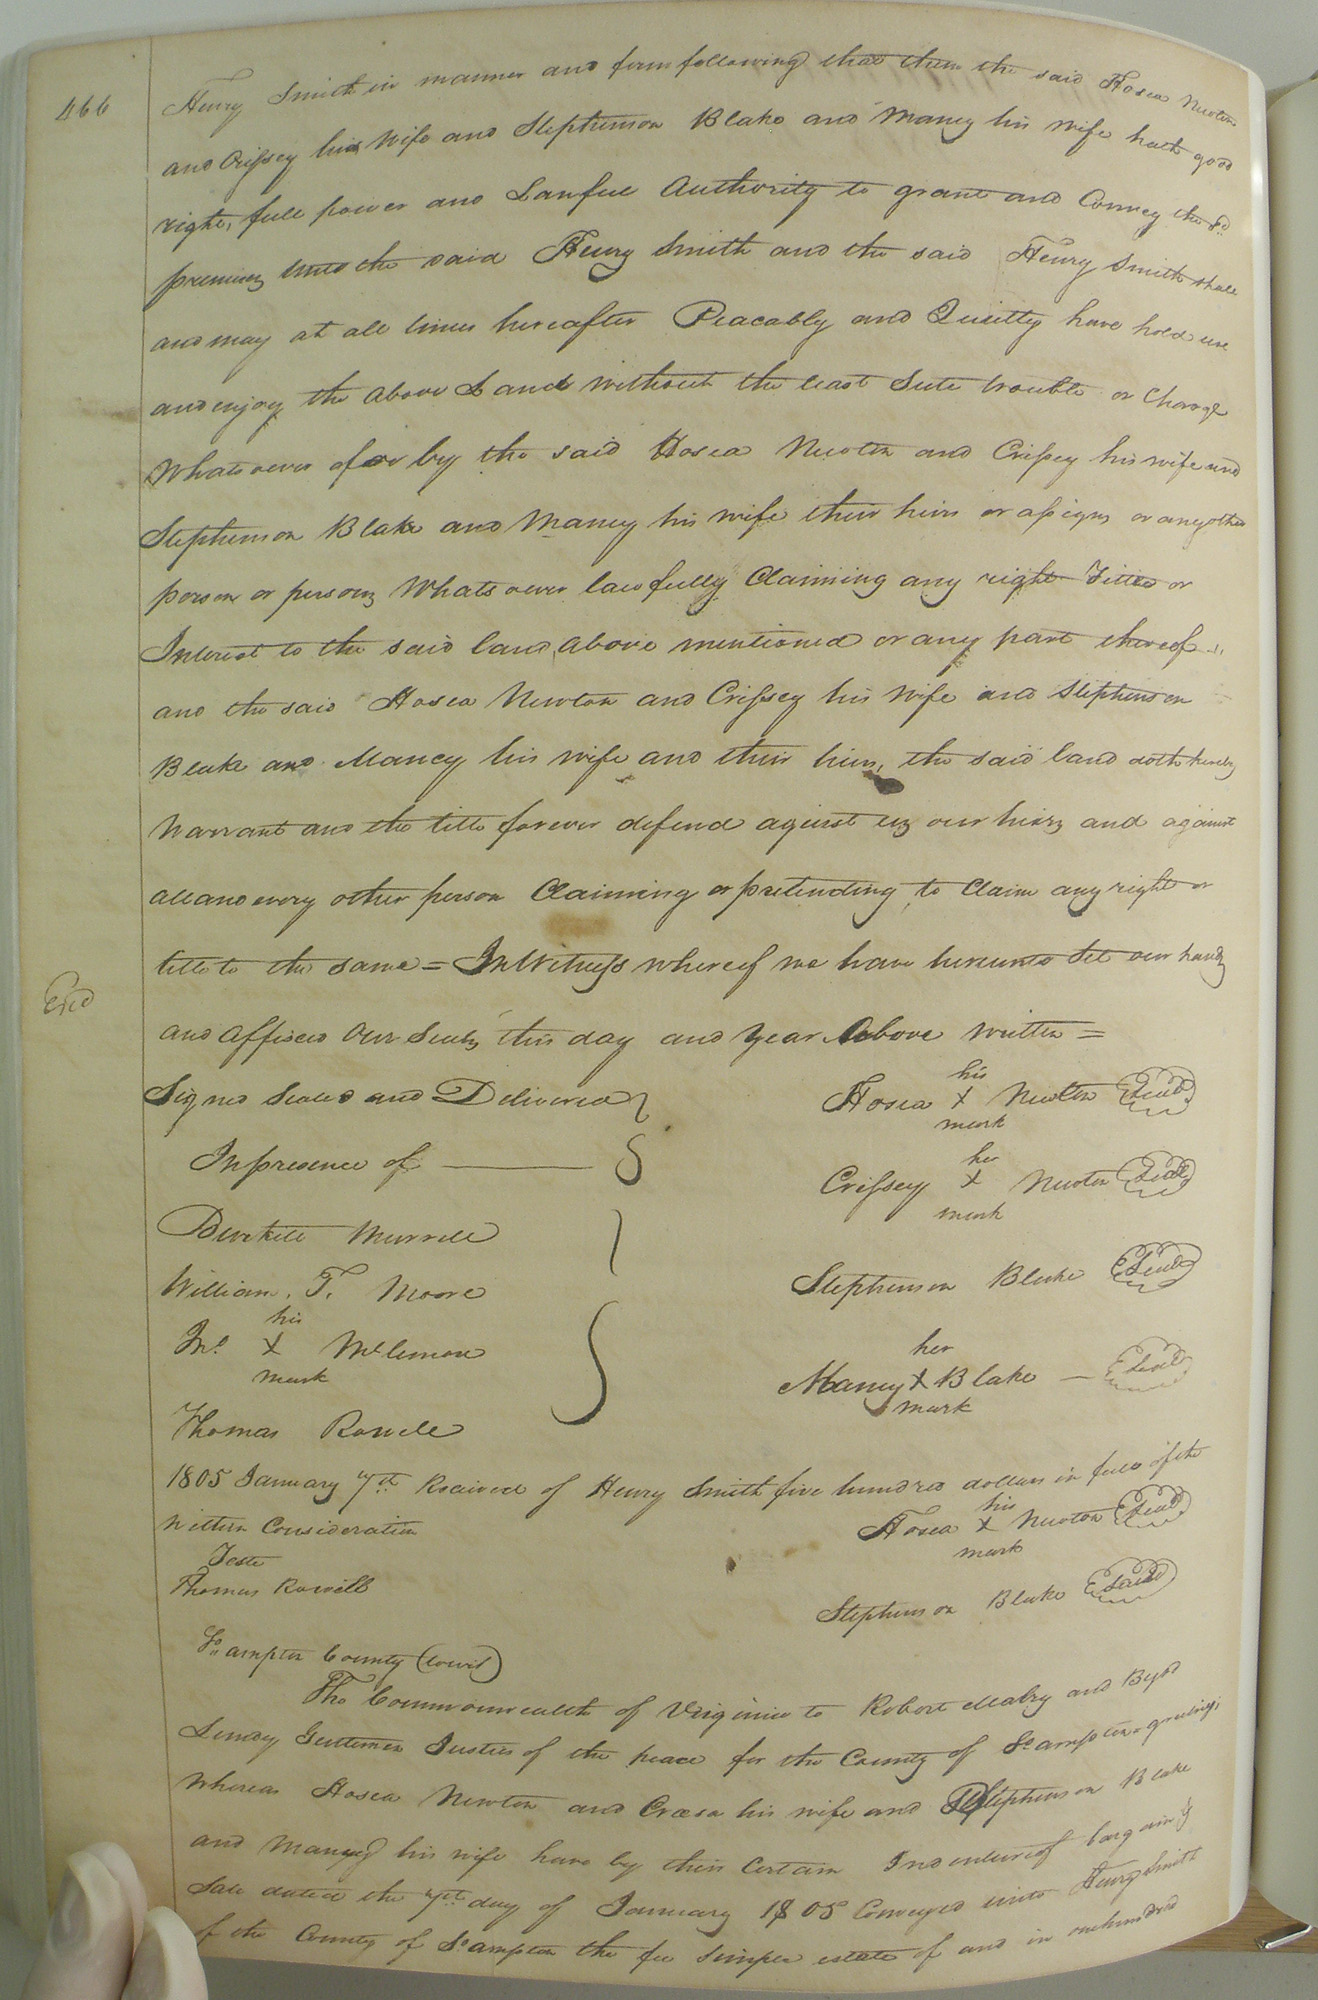 466
Henry Smith in manner and form following that them the said Hosea Newton
and Crissey his Wife and Stephenson Blake and Mancy his Wife hath good
right, full power and Lawful Authority to grant and Convey the sd
premises unto the said Henry Smith and the said Henry Smith shall
and may at all times hereafter Peacably and Quietly have hold use
and enjoy the above Land without the least Sute trouble or Charge
Whatsoever of or by the said Hosea Newton and Crissey his wife and
Stephenson Blake and Mancy his wife their heirs or assigns or any other
person or persons Whatsoever lawfully Claiming any right Title or
Interest to the said land, above mentioned or any part thereof
and the said Hosea Newton and Crissey his Wife and Stephenson
Blake and Mancy his wife and their heirs, the said land doth hereby
Warrant and the title forever defend against us our heirs and against
all and every other person Claiming or pretending to Claim any right or
title to the same = In Witness whereof we have hereunto Set our hands
Exd
and affixed Our Seals this day and Year Above written =
Signed Sealed and Delivered
In presence of
Burkitt Murrell
William. T. Moore
his
Jno. X McLemore
mark
Thomas Rowell
his
Hosea X Newton Seal
mark
her
Crissey X Newton Seal
mark
Stephenson Blake Seal
her
Mancy X Blake — Seal
mark
1805 January 7th Received of Henry Smith five hundred dollars in full of the
within Consideration
Teste
Thomas Rowell
his
Hosea X Newton Seal
mark
Stephenson Blake Seal
So.ampton County (towit)
The Commonwealth of Virginia to Robert Mabry and Byrd
Lundy Gentlemen Justices of the peace for the County of So.ampton greeting,
Whereas Hosea Newton and Creesa his wife and Stephenson Blake
and Mancy his wife have by their Certain Indenture of bargain &
Sale dated the 7th day of January 1805 Conveyed unto Henry Smith
of the County of So.ampton the fee simple estate of and in one hundred